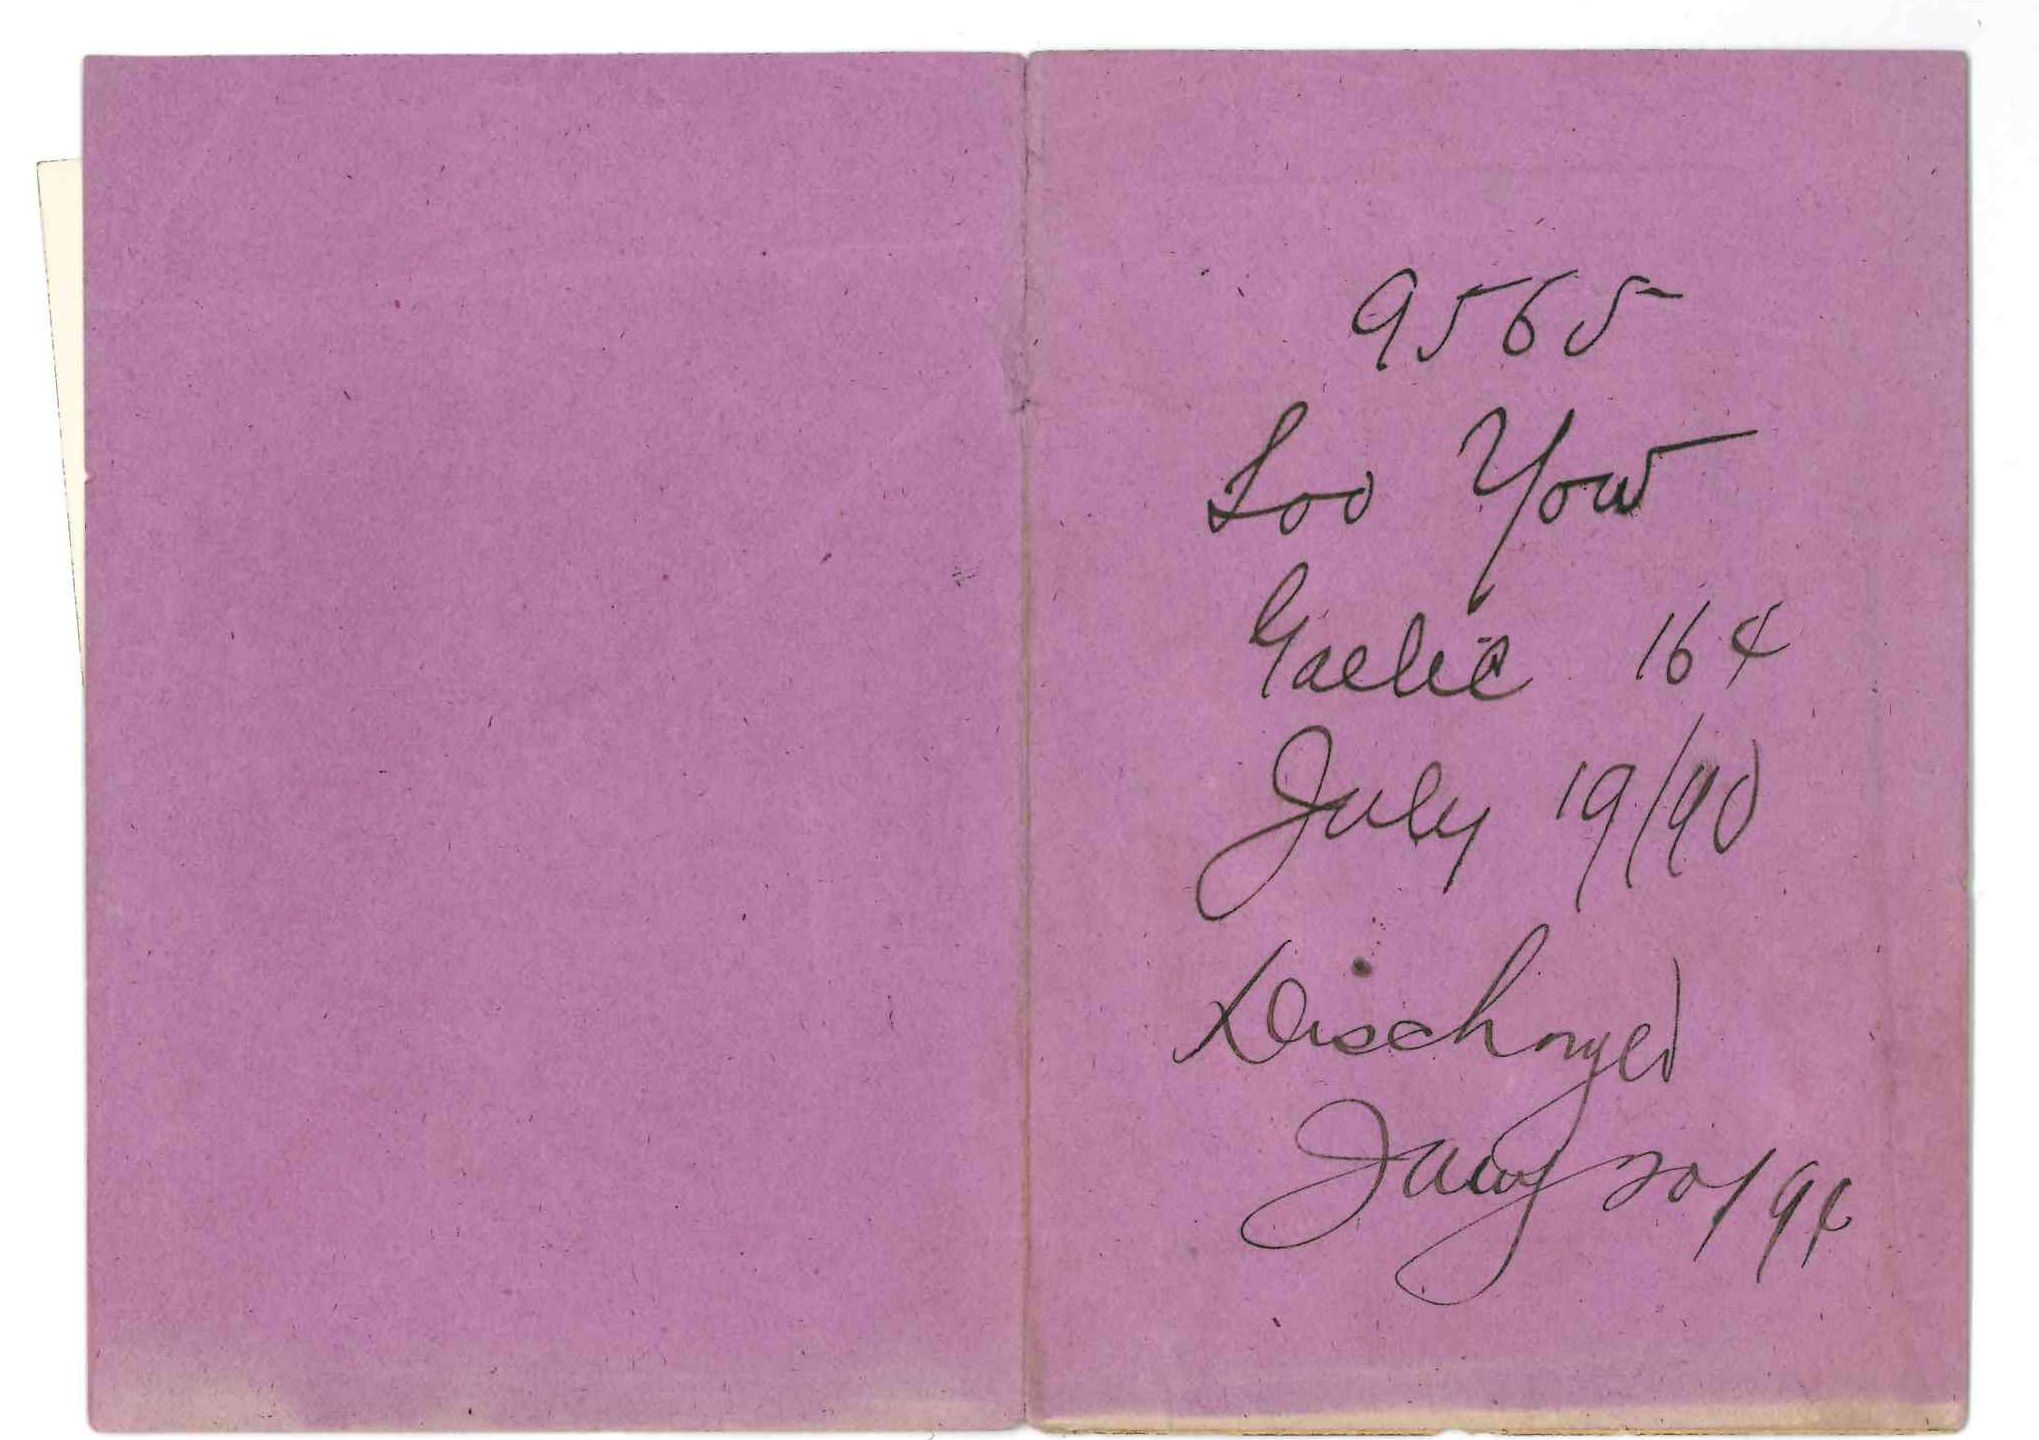 9565
Loo Yow
Gaelic 164
July 19/90
Discharged
Jany 20/96